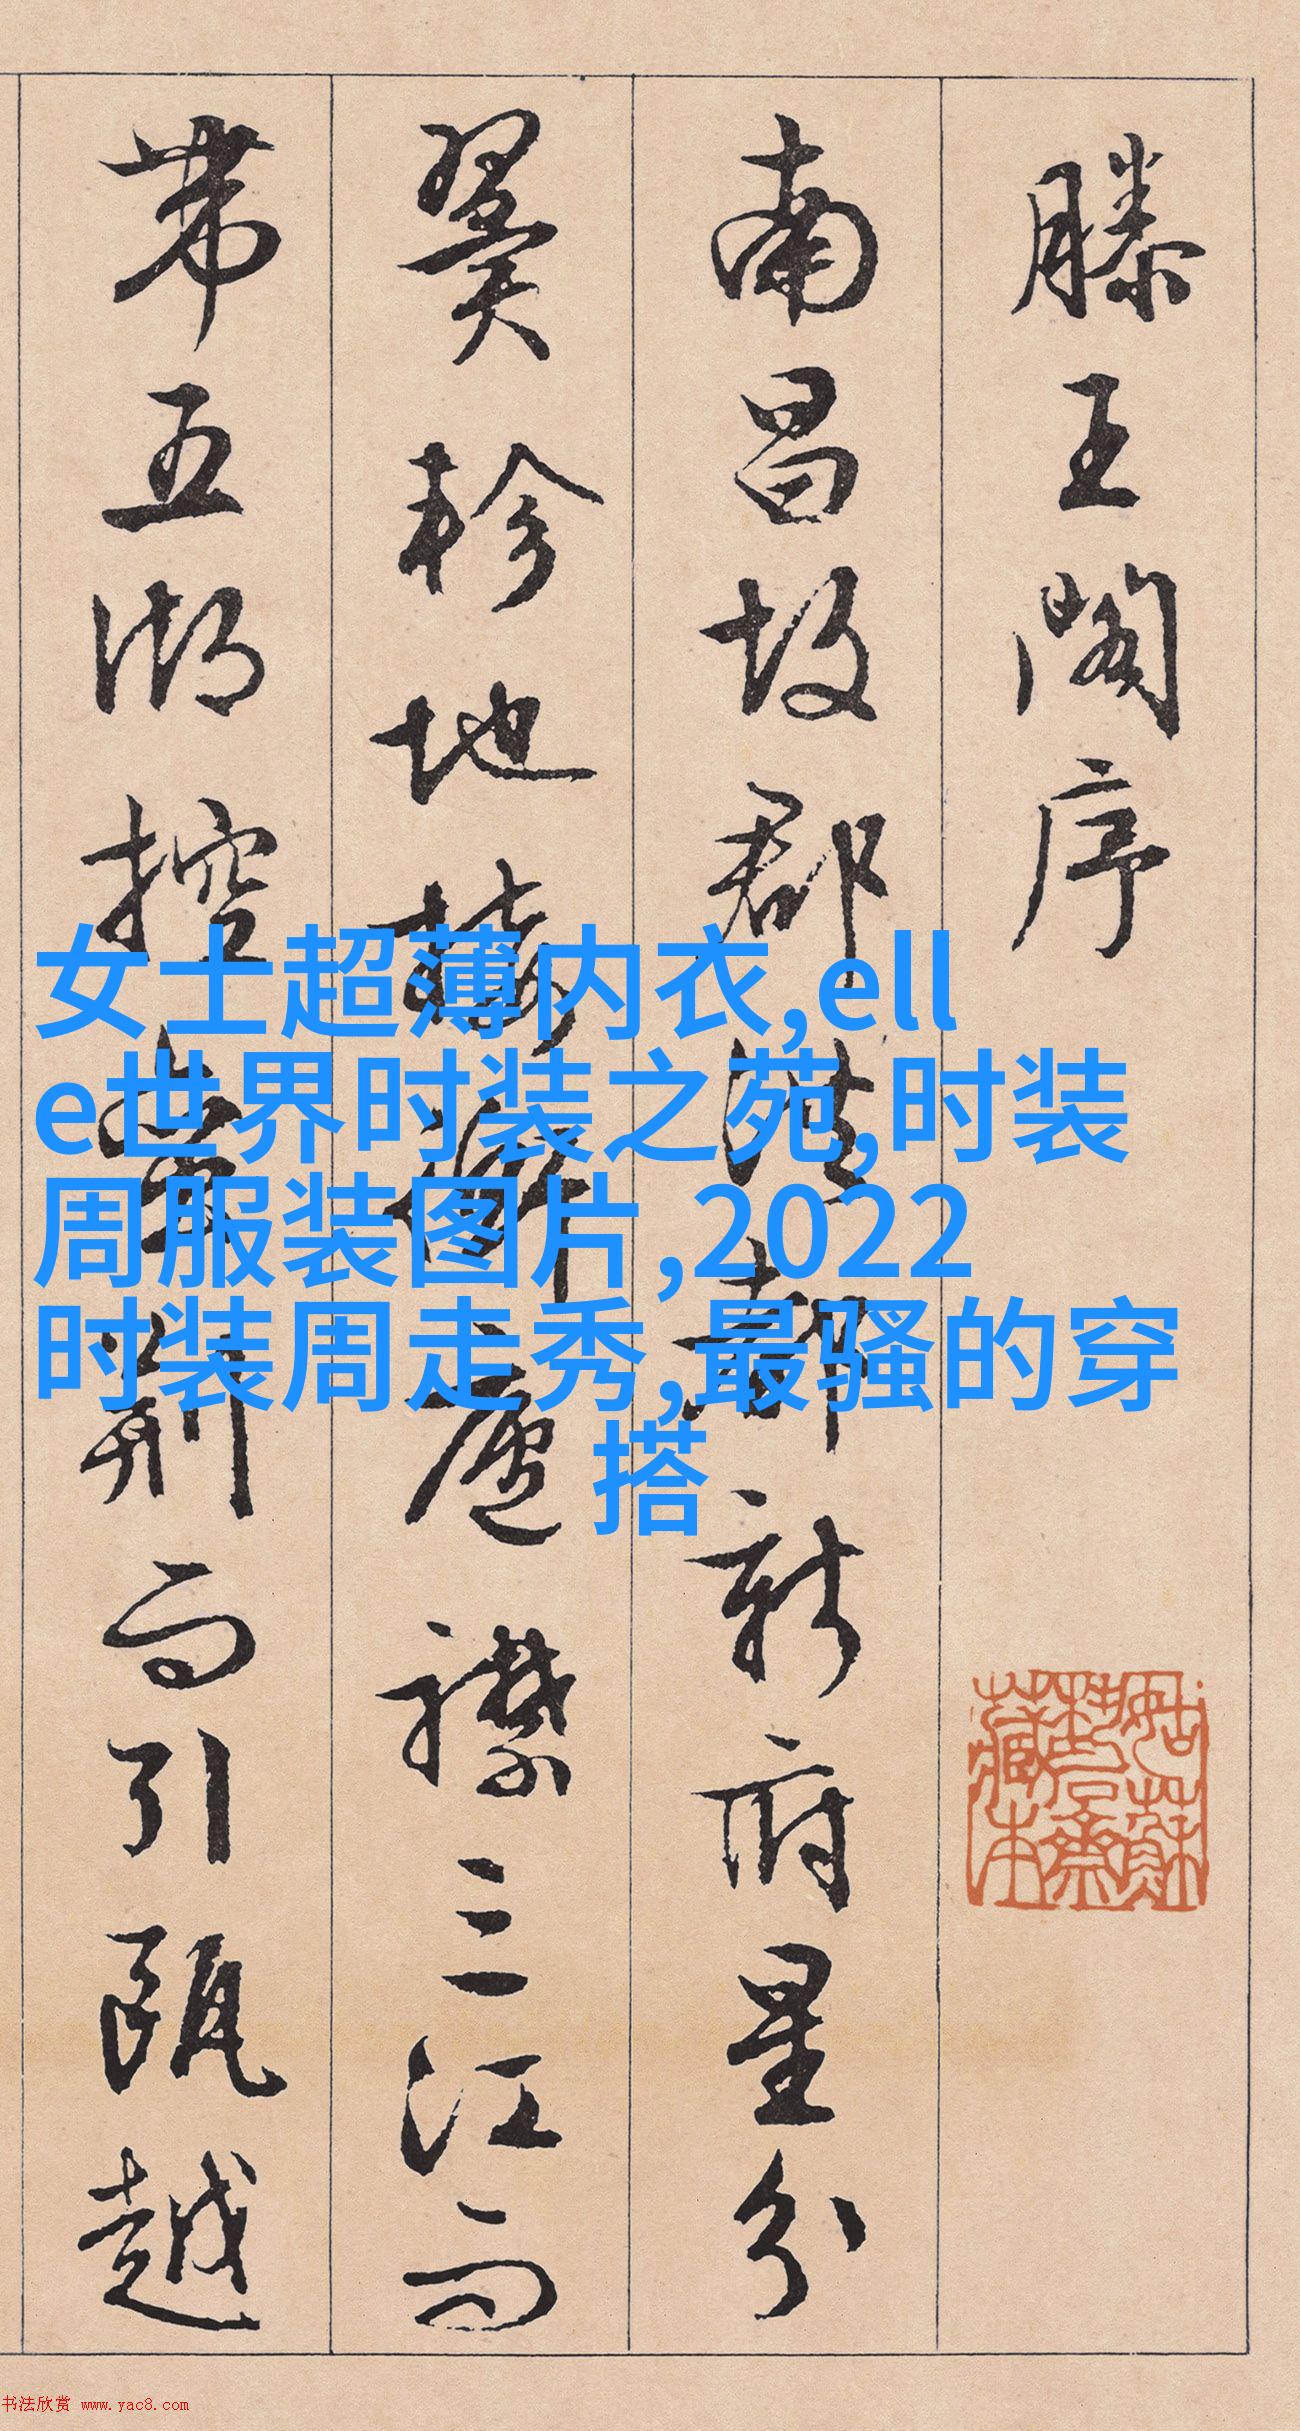 滕王閣序
南昌故郡洪都新府星分
翼軫地接衡廬襟三江而
帶五湖控蠻荆而引甌越
女士超薄内衣,ell
e世界时装之苑,时装
周服装图片,2022
时装周走秀,最骚的穿
搭
姑蘇
齋
藏本
书法欣赏 www.yac8.com